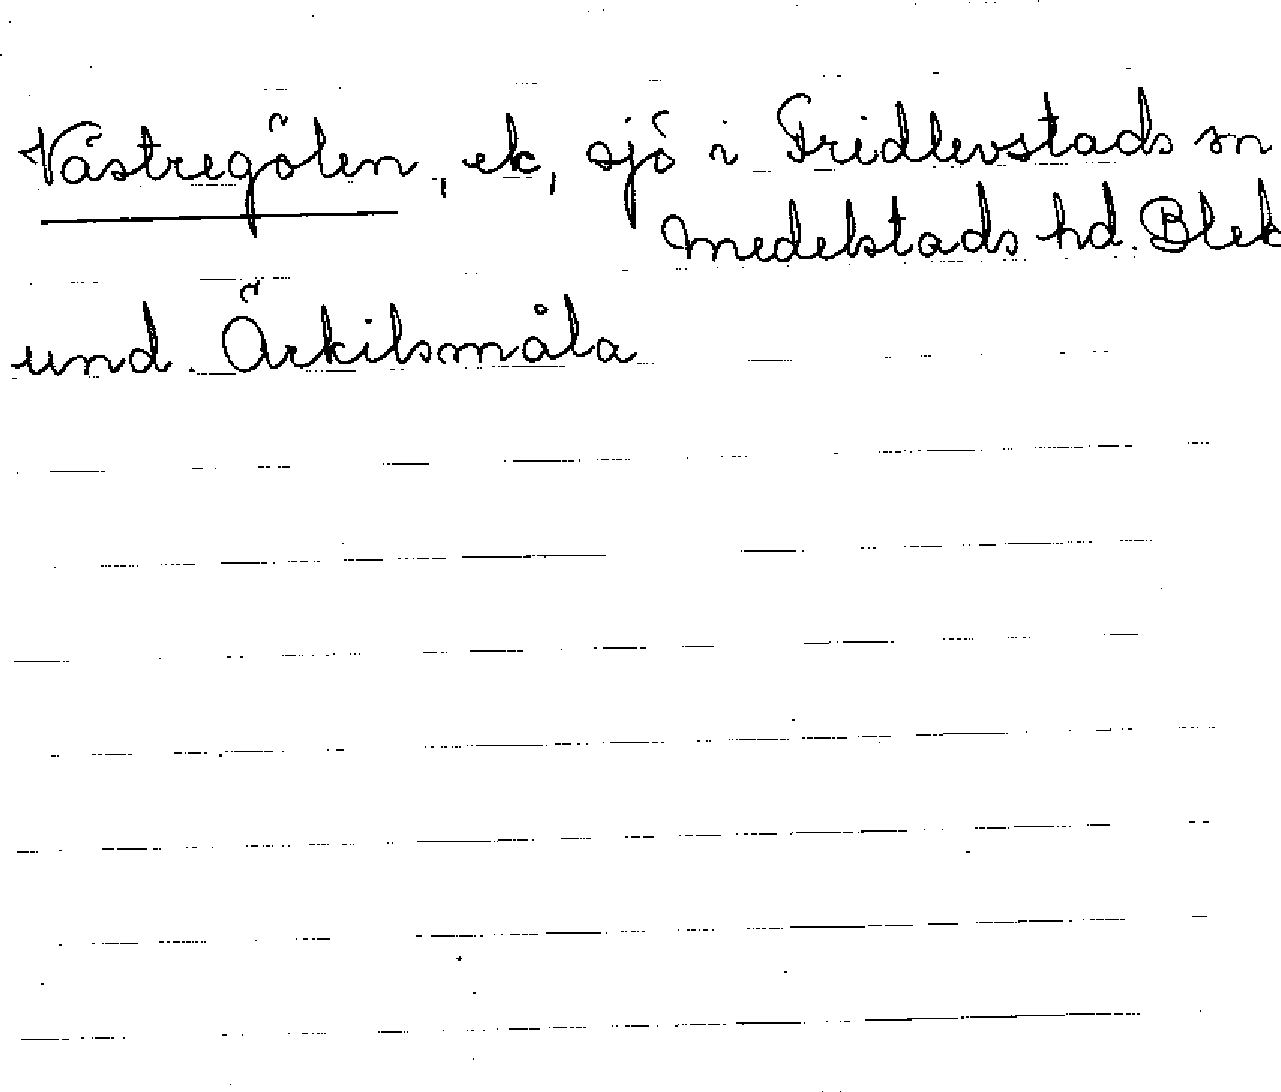 Västregölen, ek, sjö i Fridlevstads sn
Medelstads hd. Blek
und. Ärkilsmåla